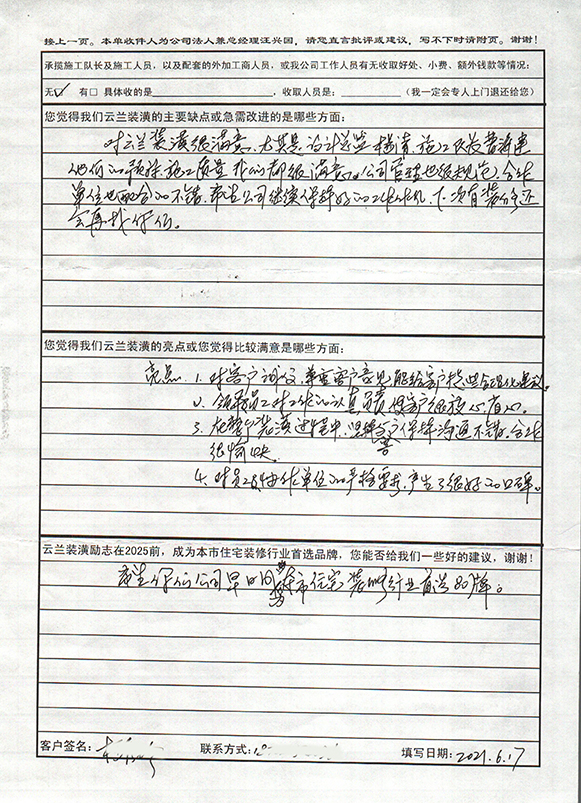 接上一页。本单收件人为公司法人兼总经理汪兴国，请您直言批评或建议，写不下时请附页。谢谢！
承揽施工队长及施工人员，以及配套的外加工商人员，或我公司工作人员有无收取好处、小费、额外钱款等情况：
无□✓ 有□ 具体收的是 ，收取人员是： （我一定会专人上门退还给您）
您觉得我们云兰装潢的主要缺点或急需改进的是哪些方面：
对云兰装潢很满意，尤其是设计总监 施工队长
他们 施工质量我们都很满意。公司管理也很规范，合作
单位也配合的不错。希望公司继续保持好的工作 ，下次有装修还
会再找你们。
您觉得我们云兰装潢的亮点或您觉得比较满意是哪些方面：
亮点：1. 对客户诚恳，尊重客户意见，能给客户提出合理化建议。
2. 领导员工对工作的认真负责 使客户很放心省心。
3. 在整个装潢过程中， 客户保持沟通不错，合作
很愉快
4. 对员工及协作单位的严格要求，产生了很好的口碑。
云兰装潢励志在2025前，成为本市住宅装修行业首选品牌，您能否给我们一些好的建议，谢谢！
希望你们公司早日 本市住宅装修行业首选品牌。
客户签名： 联系方式： 填写日期：2021.6.17